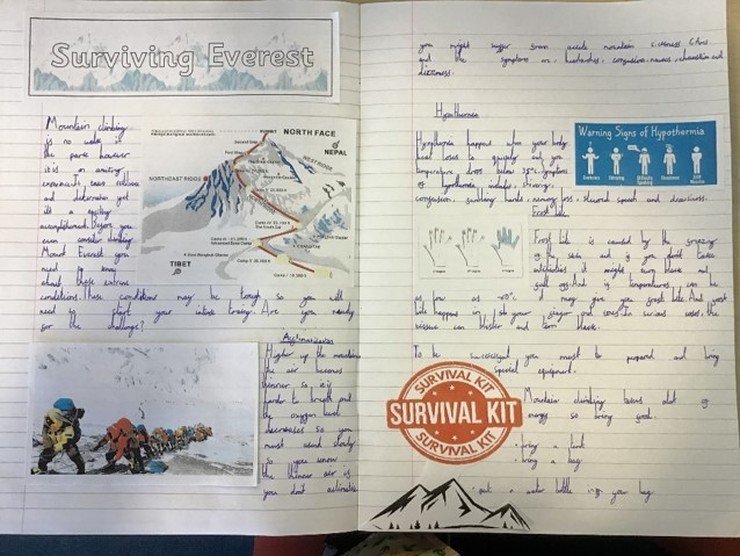 Surviving Everest
Mountain climbing
is no walk in
the park however
it is an exciting
experience it takes
and determination yet
its a exciting
accomplishment. Before you
even consider climbing
Mount Everest you
need to know
about these extreme
conditions. These conditions may be tough so you will
need to start your intense training. Are you ready
for the challenge?
SUMMIT
NORTH FACE
NEPAL
WEST RIDGE
NORTHEAST RIDGE
TIBET
Higher up the mountain
the air becomes
thinner so it is
harder to breath and
the oxygen level
decreases so you
must ascend slowly
so you know
the thinner air is
you dont
you might suffer from acute mountain sickness
and the symptoms are, headaches, confusion, nausea, exhaustion and
dizziness.
Warning Signs of Hypothermia
happens when your body
heat loses to quickly and you
temperature drops below 35°c. Symptoms
of include, shivering,
confusion, swelling hands, memory loss, slurred speech and drowsiness.
Frost bite
Frost bite is caused by the freezing
of the skin and if you dont take
it might turn black and
fall off. And if temperatures can be
as low as it may give you frost bite. And frost
bite happens in your fingers and toes. In serious cases, the
can blister and turn black.
To be successful you must be prepared and bring
special equipment.
SURVIVAL KIT
SURVIVAL KIT
SURVIVAL KIT
Mountain climbing burns alot of
energy so bring food.
bring a
bring a bag
put a water bottle in your bag